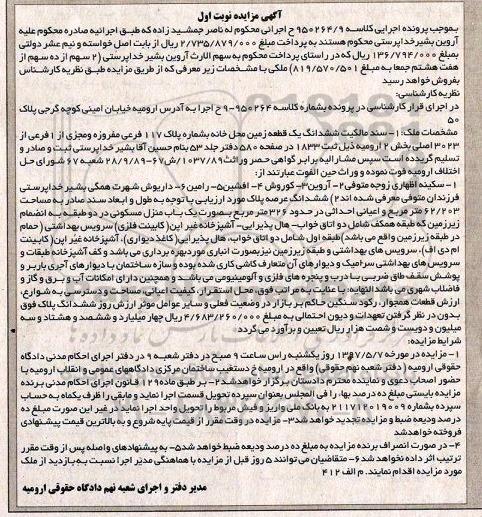 آگهی مزایده نوبت اول
بموجب پرونده اجرایی کلاسه ۹۵۰۲۶۴/۹ ح اجرائی محکوم له ناصر جمشید زاده که طبق اجرائیه صادره محکوم علیه
آروین بشیرخداپرستی محکوم هستند به پرداخت مبلغ ۲/۷۳۵/۸۷۹/۰۰۰ ریال از بابت اصل خواسته و نیم عشر دولتی
بمبلغ ۱۳۶/۷۹۴/۰۰۰ ریال که در راستای پرداخت محکوم به سهم الارث آروین بشیر خداپرستی (۲ سهم از ده سهم از
هفت هشتم جمعا به مبلغ ۸۱۹/۵۷۰/۵۰۱) ملکی با مشخصات زیر معرفی که از طریق مزایده طبق نظریه کارشناس
بفروش خواهد رسید
نظریه کارشناسی:
در اجرای قرار کارشناسی در پرونده بشماره کلاسه ۹۵۰۲۶۴-۹ ح اجرا به آدرس ارومیه خیابان امینی کوچه گرجی پلاک
۵۰
مشخصات ملک: ۱- سند مالکیت ششدانگ یک قطعه زمین محل خانه بشماره پلاک ۱۱۷ فرعی مفروزه و مجزی از ۱ فرعی از
۳۰۲۳ اصلی بخش ۲ ارومیه ذیل ثبت ۱۸۳۳ در صفحه ۵۸۰ دفتر جلد ۵۳ بنام حسین آقا بشیر خداپرستی ثبت و صادر و
تسلیم گردیده است سپس مشارالیه برابر گواهی حصر وراثت ۱۰۳۷/۸۹/ش۶۷-۲۸/۹/۸۹ شعبه ۶۷ شورای حل
اختلاف ارومیه فوت نموده و وراث حین الفوت عبارتند از:
۱- سکینه اظهاری زوجه متوفی ۲- آروین ۳- کوروش ۴- افشین ۵- رامین ۶- داریوش شهرت همگی بشیر خداپرستی
فرزندان متوفی معرفی شده اند ۲) ششدانگ عرصه پلاک مورد ارزیابی با توجه به طول و ابعاد سند صادر به مساحت
۶۲/۲۰۳ متر مربع و اعیانی احداثی در حدود ۳۲۶ متر مربع بصورت یک باب منزل مسکونی در دو طبقه به انضمام
زیرزمین که طبقه همکف شامل دو اتاق خواب- هال پذیرایی- آشپزخانه غیر این (کابینت فلزی) سرویس بهداشتی (حمام
در طبقه زیرزمین واقع می باشد) طبقه اول شامل دو اتاق خواب، هال پذیرایی (کاغذ دیواری)، آشپزخانه غیر این (کابینت
ام دی اف)، سرویس های بهداشتی و طبقه زیرزمین نیز بصورت انباری مورد بهره برداری می باشد و کف آشپزخانه طبقات و
سرویس های بهداشتی سرامیک و دیوارهای آن متعارف کاشی کاری شده بوده و سازه ساختمان با دیوارهای آجری باربر و
پوشش سقف طاق ضربی با درب و پنجره های فلزی و آلومینیومی می باشد و همچنین دارای امکانات آب و برق و گاز و
فاضلاب شهری می باشد النهایه با عنایت به مراتب فوق، محل استقرار، کیفیت اعیانی، مساحت و دسترسی به شوارع،
ارزش قطعات همجوار، رکود سنگین حاکم بر بازار در وضعیت فعلی و سایر عوامل موثر ارزش روز ششدانگ پلاک فوق
بدون در نظر گرفتن تعهدات و دیون احتمالی به مبلغ ۴/۶۸۳/۲۶۰/۰۰۰ ریال چهار میلیارد و ششصد و هشتاد و سه
میلیون و دویست و شصت هزار ریال تعیین و برآورد می گردد
شرایط مزایده:
۱- مزایده در مورخه ۹۷/۵/۷ روز یکشنبه راس ساعت ۹ صبح در دفتر شعبه ۹ در دفتر اجرای احکام مدنی دادگاه
حقوقی ارومیه (دفتر شعبه نهم حقوقی) واقع در ارومیه خ دستغیب ساختمان مرکزی دادگاههای عمومی و انقلاب ارومیه با
حضور اصحاب دعوی و نماینده محترم دادستان برگزار خواهد شد ۲- بر طبق ماده ۱۲۹ قانون اجرای احکام مدنی برنده
مزایده بایستی مبلغ ده درصد بها، را فی المجلس بعنوان سپرده تحویل قسمت اجرا نماید و مابقی را ظرف یکماه به حساب
سپرده بشماره ۲۱۷۱۲۰۱۹۰۰۹ به بانک ملی واریز و فیش مربوط را تحویل واحد اجرا نماید در غیر این صورت مبلغ ده
درصد ودیعه ضبط و مزایده تجدید خواهد شد ۳- مزایده در وقت مقرر از قیمت پایه شروع و به بالاترین قیمت پیشنهادی
فروخته خواهد شد
۴- در صورت انصراف برنده مزایده به مبلغ ده درصد ودیعه ضبط خواهد شد ۵- به پیشنهادهای واصله پس از وقت مقرر
ترتیب اثر داده نخواهد شد ۶- متقاضیان می توانند ۵ روز قبل از مزایده با هماهنگی مدیر اجرا نسبت به بازدید از ملک
مورد مزایده اقدام نمایند. م الف ۴۱۲
مدیر دفتر و اجرای شعبه نهم دادگاه حقوقی ارومیه